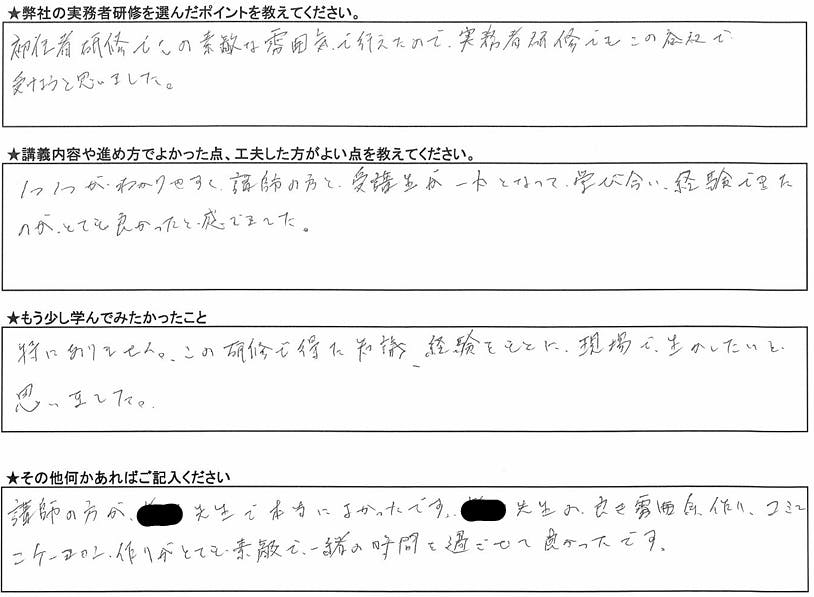 ★弊社の実務者研修を選んだポイントを教えてください。
初任者研修でこの素敵な雰囲気で行えたので、実務者研修でもこの会社で
受けようと思いました。
★講義内容や進め方でよかった点、工夫した方がよい点を教えてください。
1つ1つが、わかりやすく、講師の方と、受講生が一体となって、学び合い、経験できた
のが、とても良かったと感じました。
★もう少し学んでみたかったこと
特にありません。この研修で得た知識、経験をもとに、現場で、生かしたいと
思いました。
★その他何かあればご記入ください
講師の方が、先生で本当によかったです。先生の、良き雰囲気作り、コミュ
ニケーション作りがとても素敵で、一緒の時間を過ごせて良かったです。